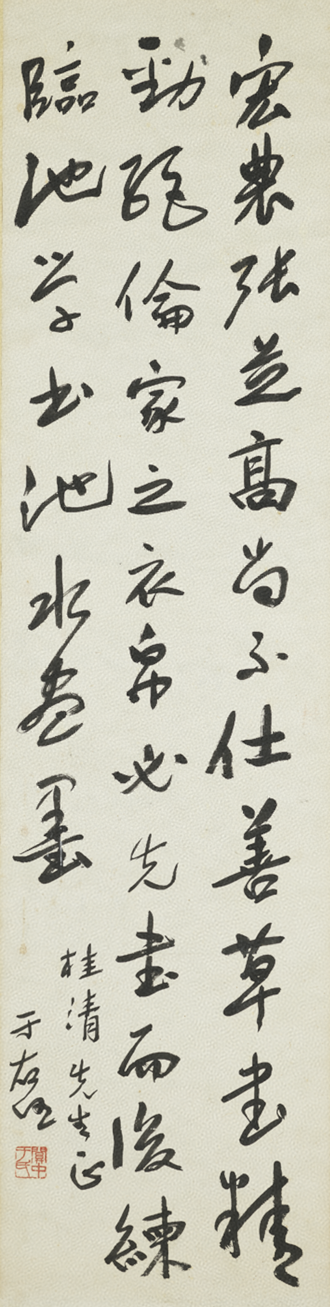 宏農張芝高尚不仕善草書精
勁絕倫家之衣帛必先書而後練
臨池学书池水盡墨
桂清先生正
于右任
關中于氏